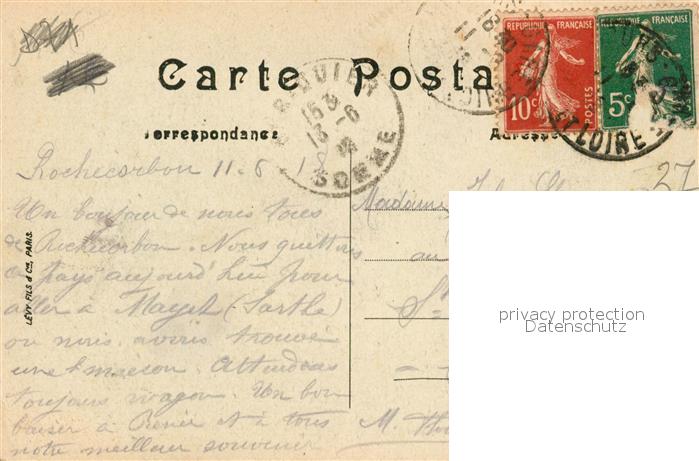 Carte Posta
Correspondance
Adresse
RÉPUBLIQUE FRANÇAISE
10c POSTES
RÉPUBLIQUE FRANÇAISE
5c
ST QUENTIN
15 3
13 -6
18
SOMME
ET LOIRE
27
Rochecorbon 11-6-18
Un bonjour de nous tous
de Rochecorbon. Nous quittons
ce pays aujourd'hui pour
aller à Mayet (Sarthe)
ou nous avons trouvé
une maison. Attendons
toujours wagon. Un bon
baiser à Renée et à tous
notre meilleur souvenir
Madame
au
St
M.
LÉVY FILS & Cie, PARIS.
privacy protection
Datenschutz